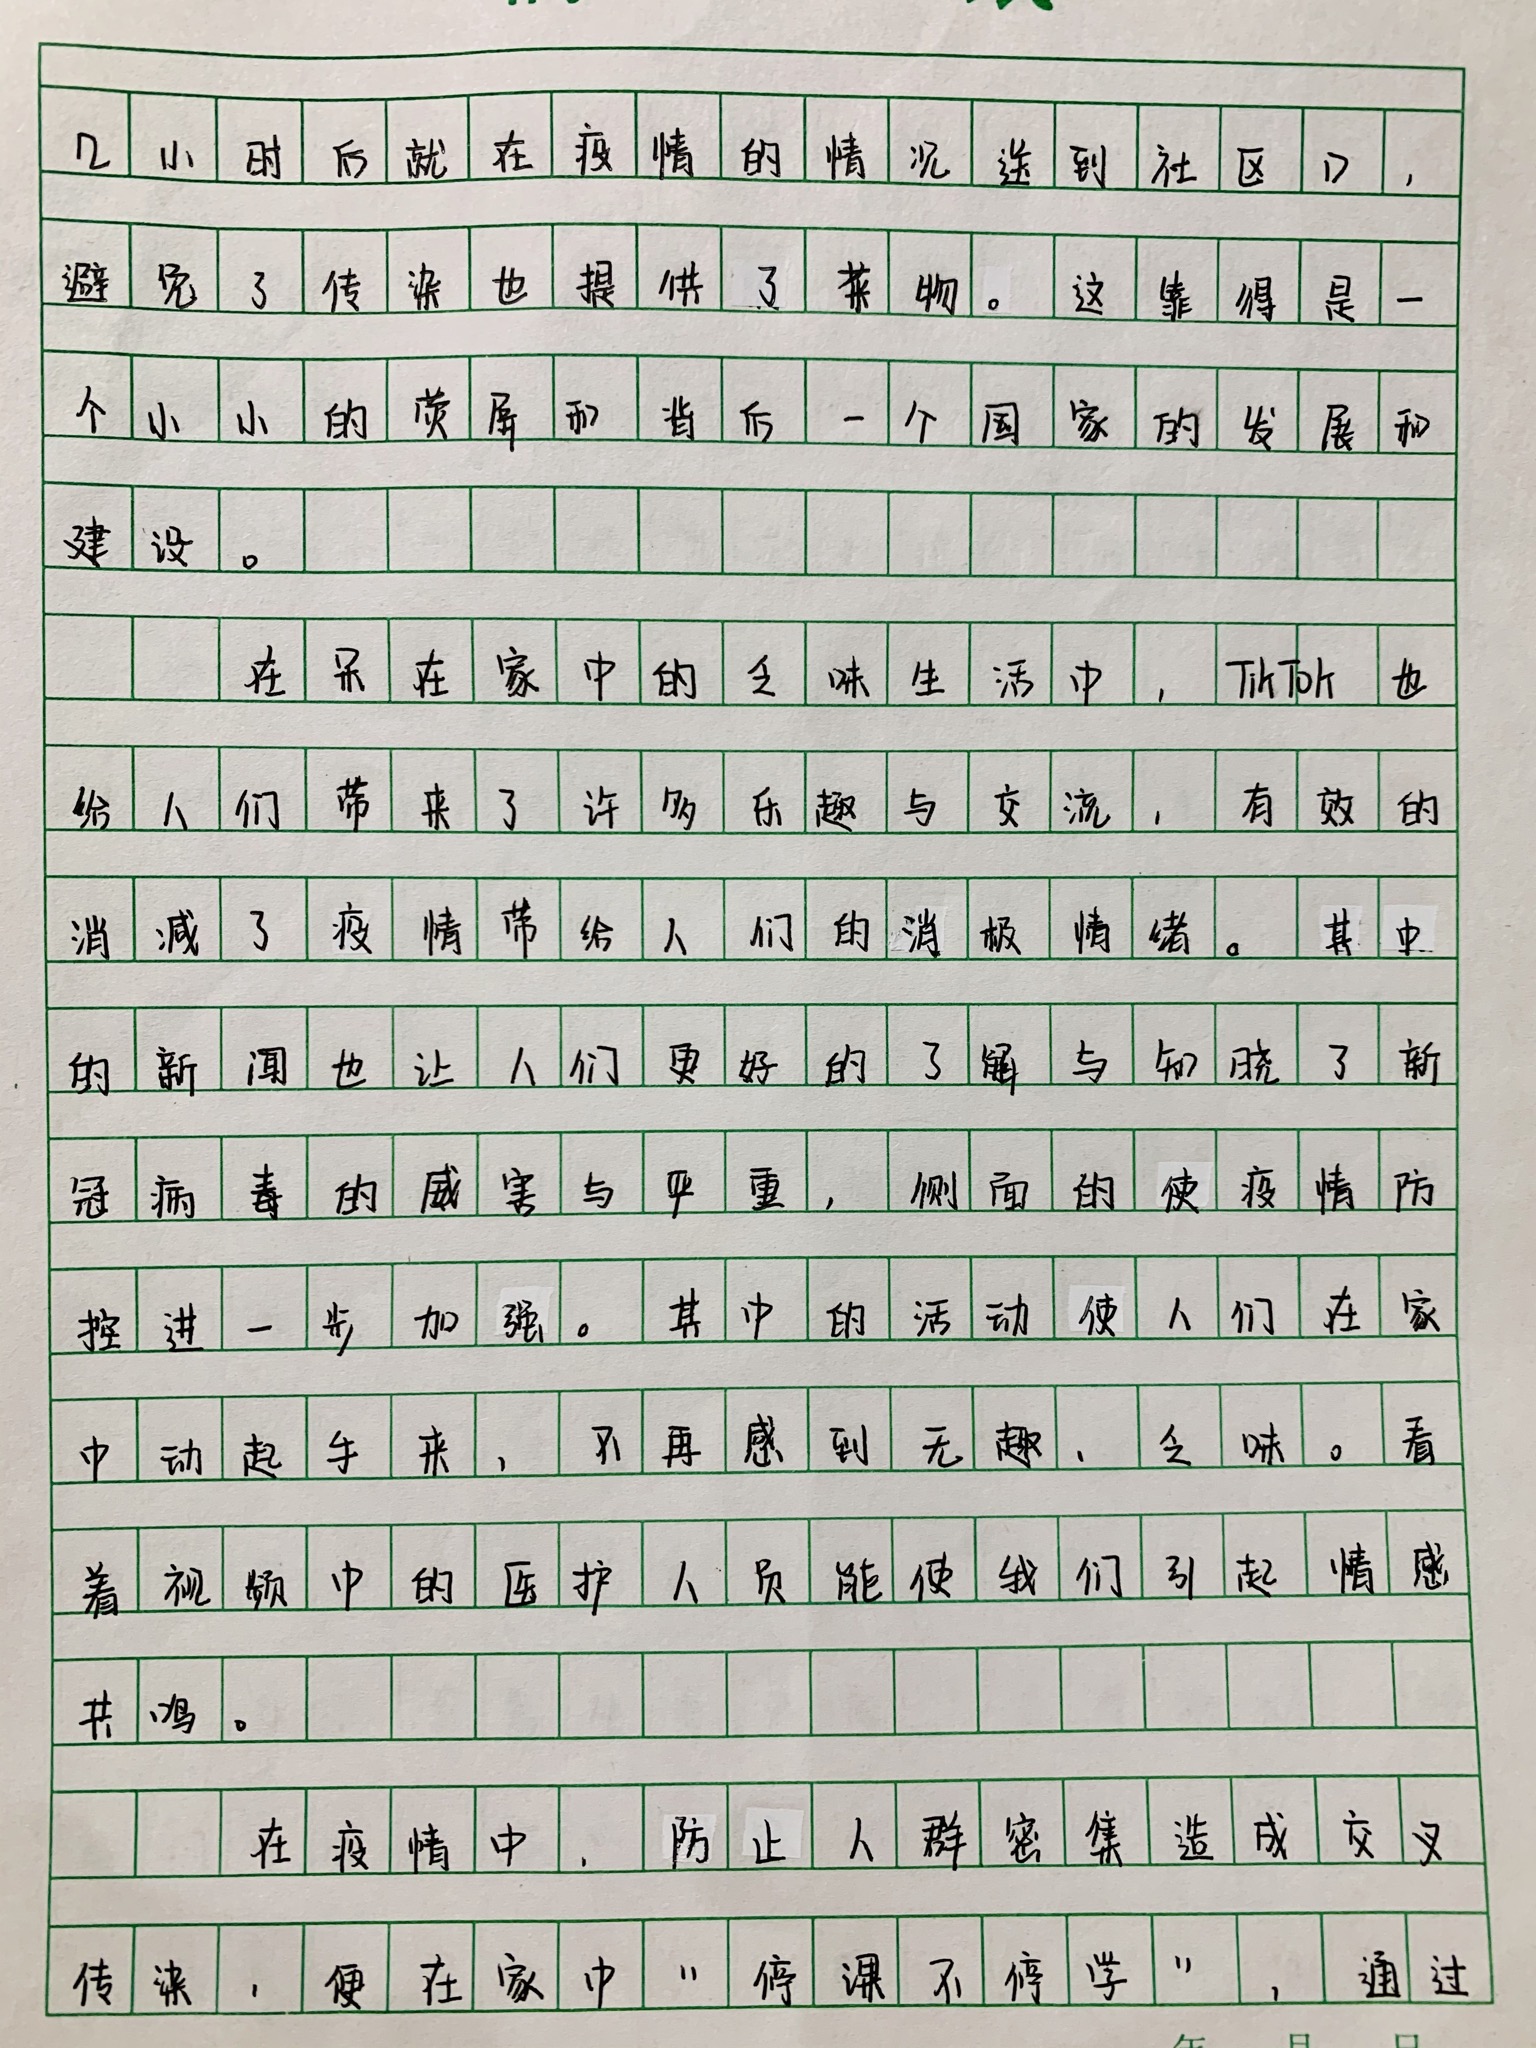 几小时后就在疫情的情况送到社区门，
避免了传染也提供了菜物。这靠得是一
个小小的荧屏和背后一个国家的发展和
建设。
在呆在家中的乏味生活中，TikTok也
给人们带来了许多乐趣与交流，有效的
消减了疫情带给人们的消极情绪。其中
的新闻也让人们更好的了解与知晓了新
冠病毒的威害与严重，侧面的使疫情防
控进一步加强。其中的活动使人们在家
中动起手来，不再感到无趣、乏味。看
着视频中的医护人员能使我们引起情感
共鸣。
在疫情中，防止人群密集造成交叉
传染，便在家中"停课不停学"，通过
年 月 日